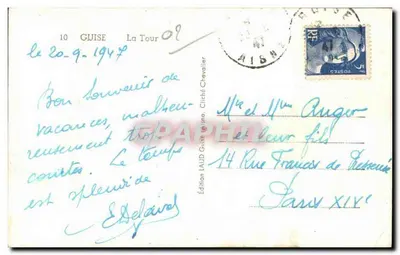 10 GUISE La Tour 02
le 20-9-1947
Bon souvenir de
vacances, malheu-
reusement trop
courtes. Le temps
est splendide
E Delaval
Edition LAUD Cliché Chevelier
GUISE
AISNE
47
RF
POSTES
5F
Mr et Mme Anger
et leur fils
14 Rue Francis de Pressensé
Paris XIVe